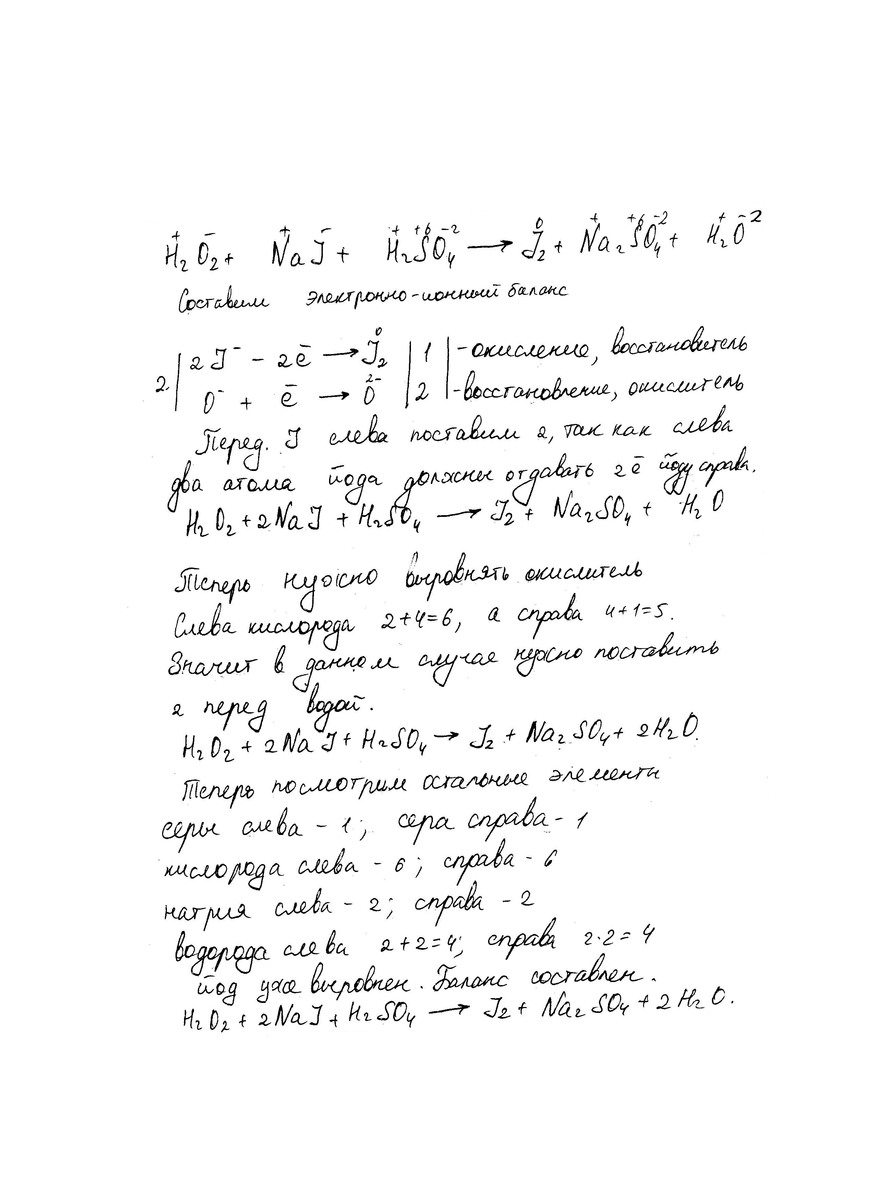 H₂⁺O₂⁻ + Na⁺J⁻ + H₂⁺S⁺⁶O₄⁻² → J₂⁰ + Na₂⁺S⁺⁶O₄⁻² + H₂⁺O⁻²
Составим электронно-ионный баланс
2J⁻ - 2ē → J₂⁰ | 1 | - окисление, восстановитель
2 | O⁻ + ē → O²⁻ | 2 | - восстановление, окислитель
Перед. J слева поставим 2, так как слева
два атома йода должны отдавать 2ē йоду справа.
H₂O₂ + 2NaJ + H₂SO₄ → J₂ + Na₂SO₄ + H₂O
Теперь нужно выровнять окислитель
Слева кислорода 2+4=6, а справа 4+1=5.
Значит в данном случае нужно поставить
2 перед водой.
H₂O₂ + 2NaJ + H₂SO₄ → J₂ + Na₂SO₄ + 2H₂O.
Теперь посмотрим остальные элементы
серы слева - 1; сера справа - 1
кислорода слева - 6; справа - 6
натрия слева - 2; справа - 2
водорода слева 2+2=4; справа 2·2=4
йод уже выровнен. Баланс составлен.
H₂O₂ + 2NaJ + H₂SO₄ → J₂ + Na₂SO₄ + 2H₂O.